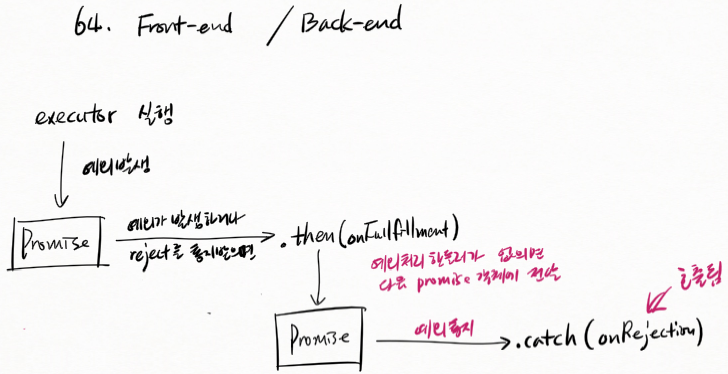 64. Front-end / Back-end
executor 실행
예외발생
Promise
예외가 발생하거나
reject를 통지받으면
.then(onFulfillment)
예외처리 핸들러가 없으면
다음 promise 객체에 전달
Promise
예외통지
.catch(onRejection)
호출됨